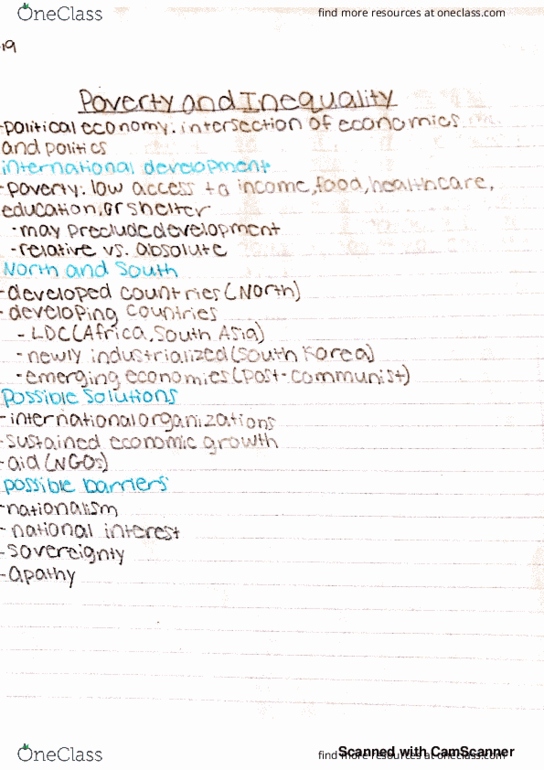 OneClass
find more resources at oneclass.com
19
Poverty and Inequality
-political economy: intersection of economics
and politics
international development
-poverty: low access to income, food, healthcare,
education, or shelter
-may preclude development
-relative vs. absolute
North and South
-developed countries (North)
-developing countries
- LDC (Africa, South Asia)
-newly industrialized (South Korea)
-emerging economies (post-communist)
Possible Solutions
-international organizations
-sustained economic growth
-aid (NGOs)
possible barriers
-nationalism
-national interest
-sovereignty
-apathy
OneClass
find more resources at oneclass.com
Scanned with CamScanner